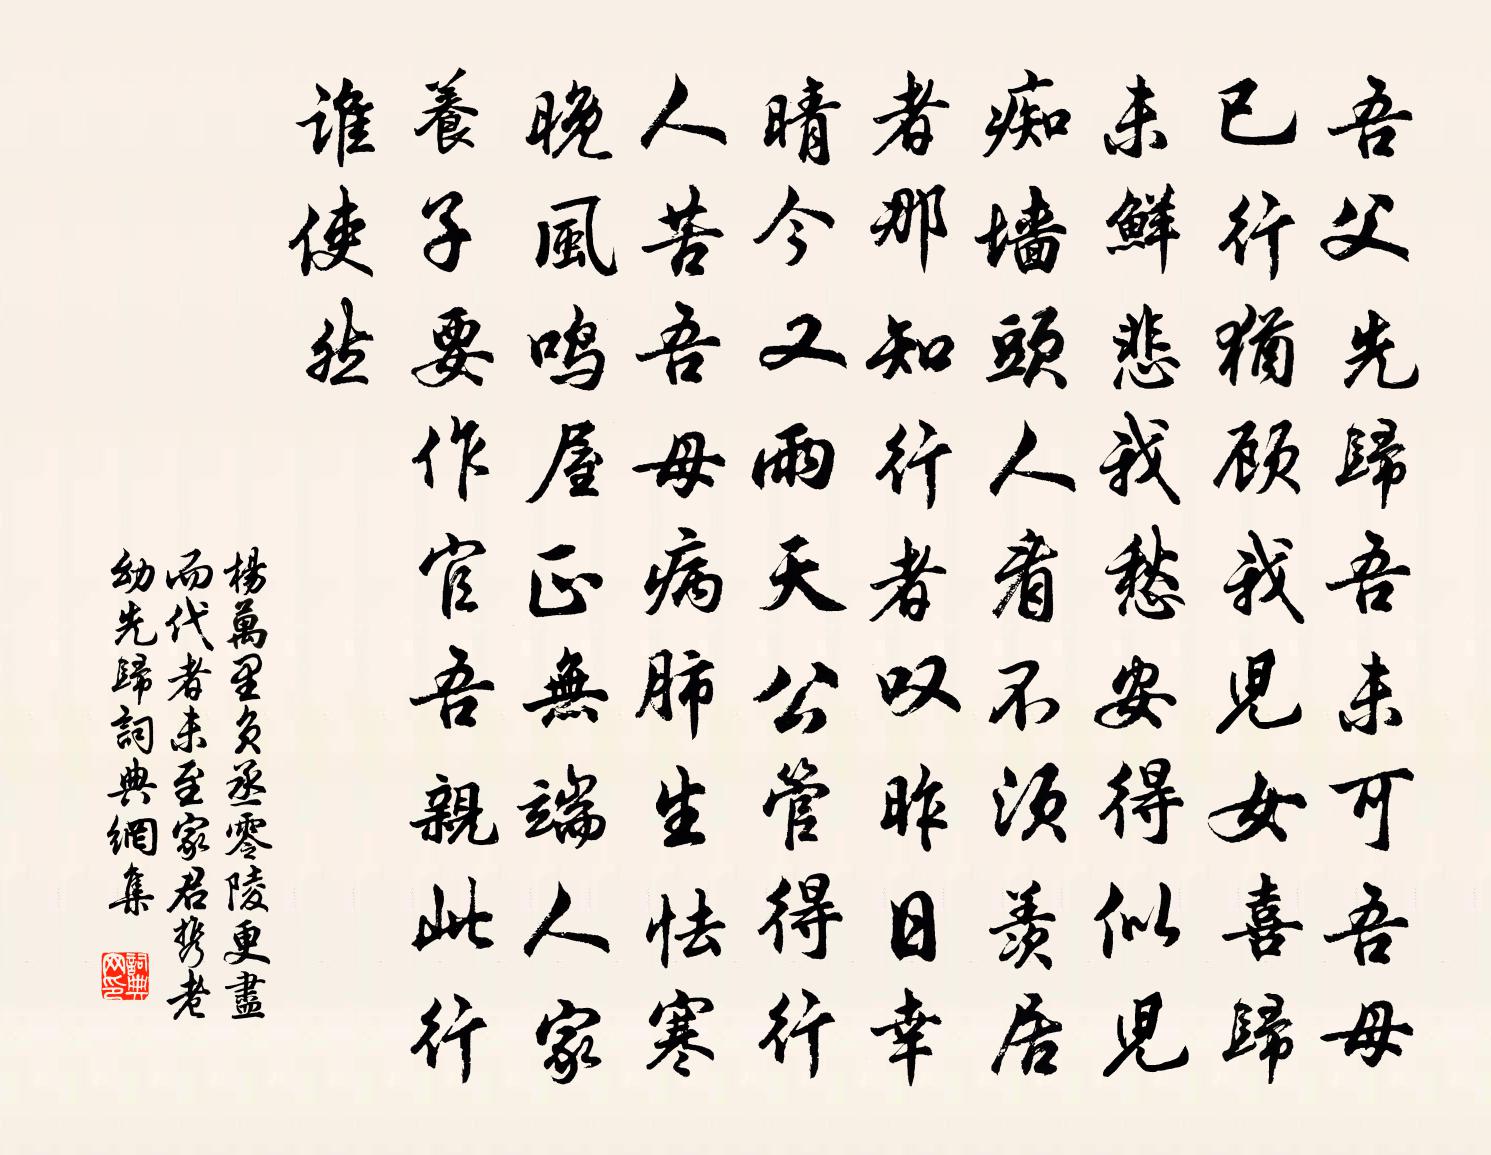 吾父先歸吾未可吾母
已行猶顾我兒女喜歸
未鮮悲我愁安得似兒
痴墙頭人看不須羨居
者那知行者叹昨日幸
晴今又雨天公管得行
人苦吾母病肺生怯寒
晚風鸣屋正無端人家
養子要作官吾親此行
谁使然
楊萬里負丞零陵更盡
而代者未至家君携老
幼先歸詞典網集
詞典网印